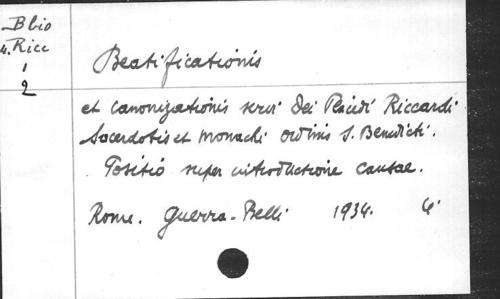 B bio
4. Ricc
1
2
Beatificationis
et canonizationis servi Dei Placidi Riccardi
Sacerdotis et monachi ordinis S. Benedicti.
Positio super introductione causae.
Rome. Guerra-Belli 1934. 4°